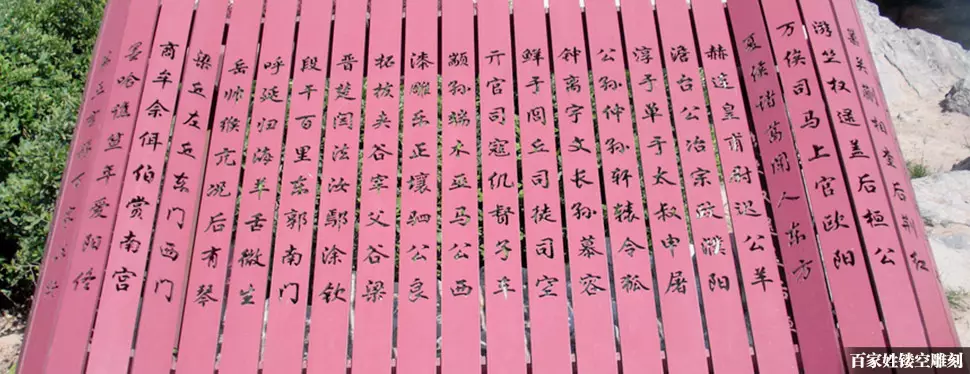 关蒯相查后荆红
游竺权逯盖后桓公
万俟司马上官欧阳
夏侯诸葛闻人东方
赫连皇甫尉迟公羊
澹台公冶宗政濮阳
淳于单于太叔申屠
公孙仲孙轩辕令狐
钟离宇文长孙慕容
鲜于闾丘司徒司空
亓官司寇仉督子车
颛孙端木巫马公西
漆雕乐正壤驷公良
拓拔夹谷宰父谷梁
晋楚闫法汝鄢涂钦
段干百里东郭南门
呼延归海羊舌微生
岳帅缑亢况后有琴
梁丘左丘东门西门
商牟余佴伯赏南宫
墨哈谯笪年爱阳佟
五言福百家
百家姓镂空雕刻